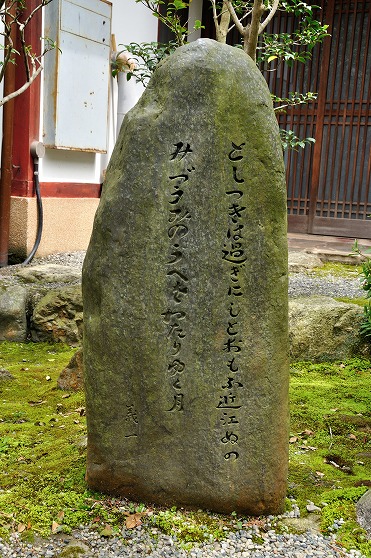 としつきは過ぎにしとおもふ近江ぬの
みづうみのうへをわたりゆく月
義一